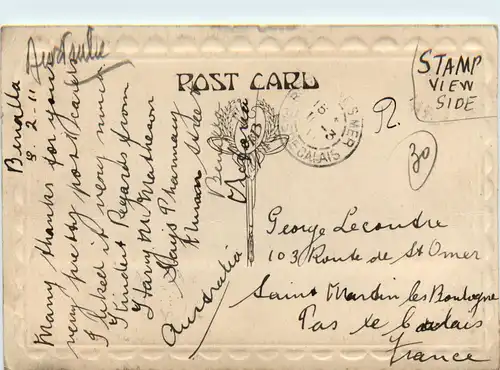 Australie
POST CARD
STAMP
VIEW
SIDE
Benalla
8.2.11
Many thanks for your
very pretty post cards
I liked it very much
Kindest Regards from
Harry M. Matheson
Hays Pharmacy
Street
Benalla
Victoria
Australia
CALAIS
R.
30
George Lecondre
103 Route de St Omer
Saint Martin les Boulogne
Pas de Calais
France